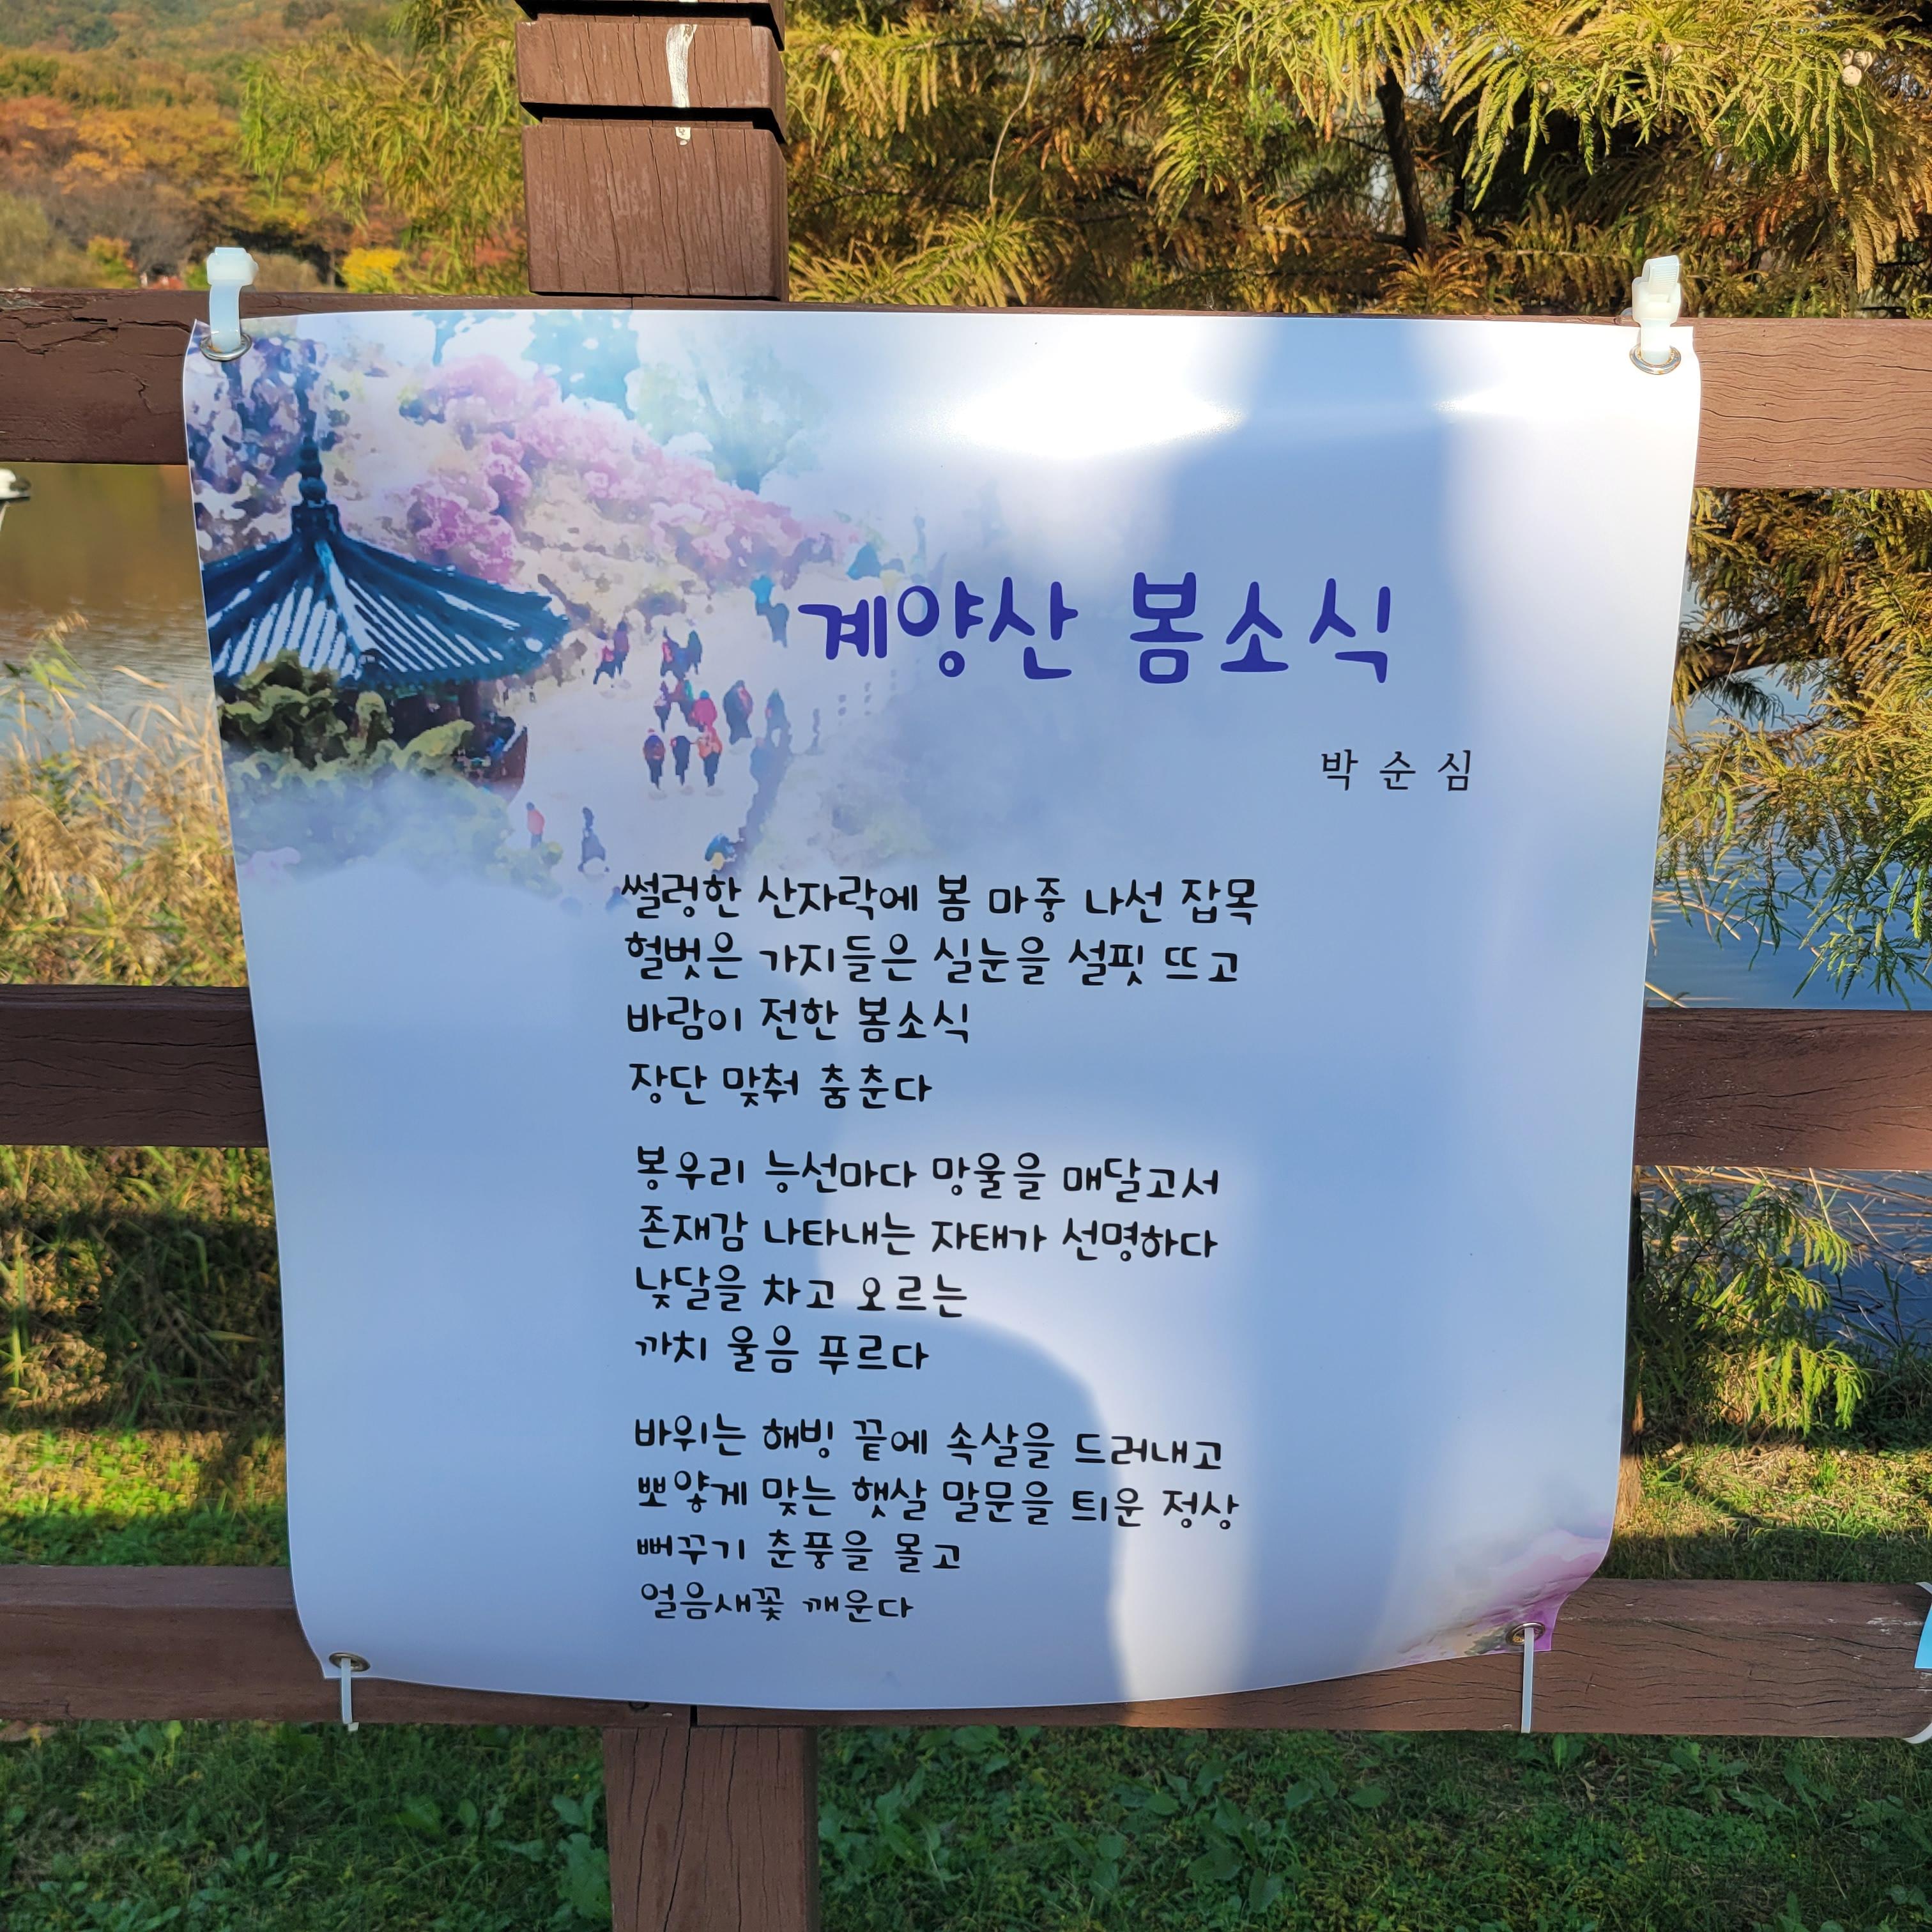 계양산 봄소식
박순심
썰렁한 산자락에 봄 마중 나선 잡목
헐벗은 가지들은 실눈을 설핏 뜨고
바람이 전한 봄소식
장단 맞춰 춤춘다
봉우리 능선마다 망울을 매달고서
존재감 나타내는 자태가 선명하다
낮달을 차고 오르는
까치 울음 푸르다
바위는 해빙 끝에 속살을 드러내고
뽀얗게 맞는 햇살 말문을 틔운 정상
뻐꾸기 춘풍을 몰고
얼음새꽃 깨운다